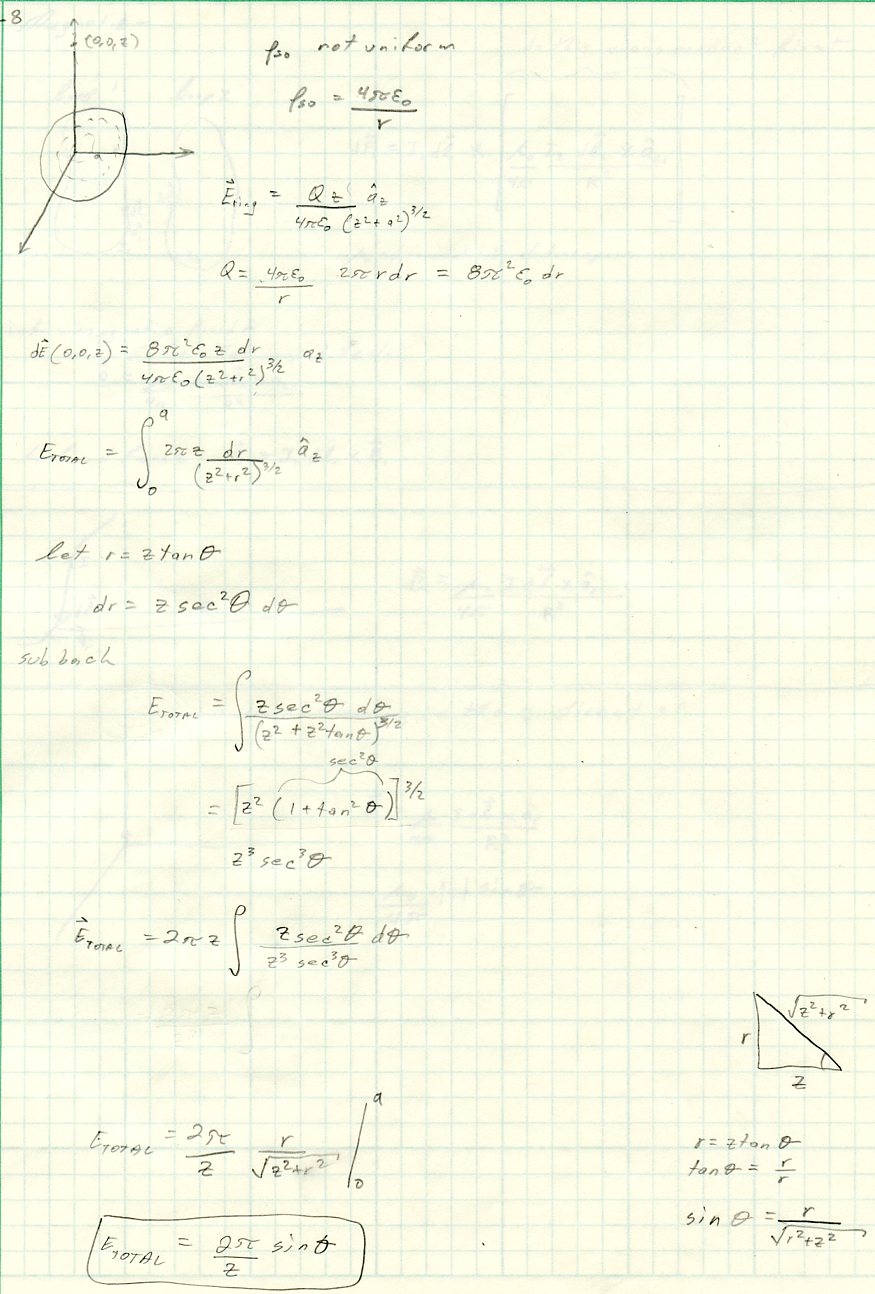 -8
(0,0,z)
ρso not uniform
ρso = 4πε₀ / r
a
E⃗ring = Qz / 4πε₀ (z² + a²)^3/2 âz
Q = 4πε₀ / r 2πr dr = 8π²ε₀ dr
dE⃗(0,0,z) = 8π²ε₀ z dr / 4πε₀(z²+r²)^3/2 az
ETOTAL = ∫₀^a 2πz dr / (z²+r²)^3/2 âz
let r = z tanθ
dr = z sec²θ dθ
sub back
ETOTAL = ∫ z sec²θ dθ / (z² + z² tanθ)^3/2
sec²θ
= [z² (1 + tan²θ)]^3/2
z³ sec³θ
E⃗TOTAL = 2πz ∫ z sec²θ dθ / z³ sec³θ
= ∫
r
√z²+r²
z
ETOTAL = 2π / z r / √z²+r² |₀^a
r = z tanθ
tanθ = r / r
sin θ = r / √r²+z²
ETOTAL = 2π / z sinθ